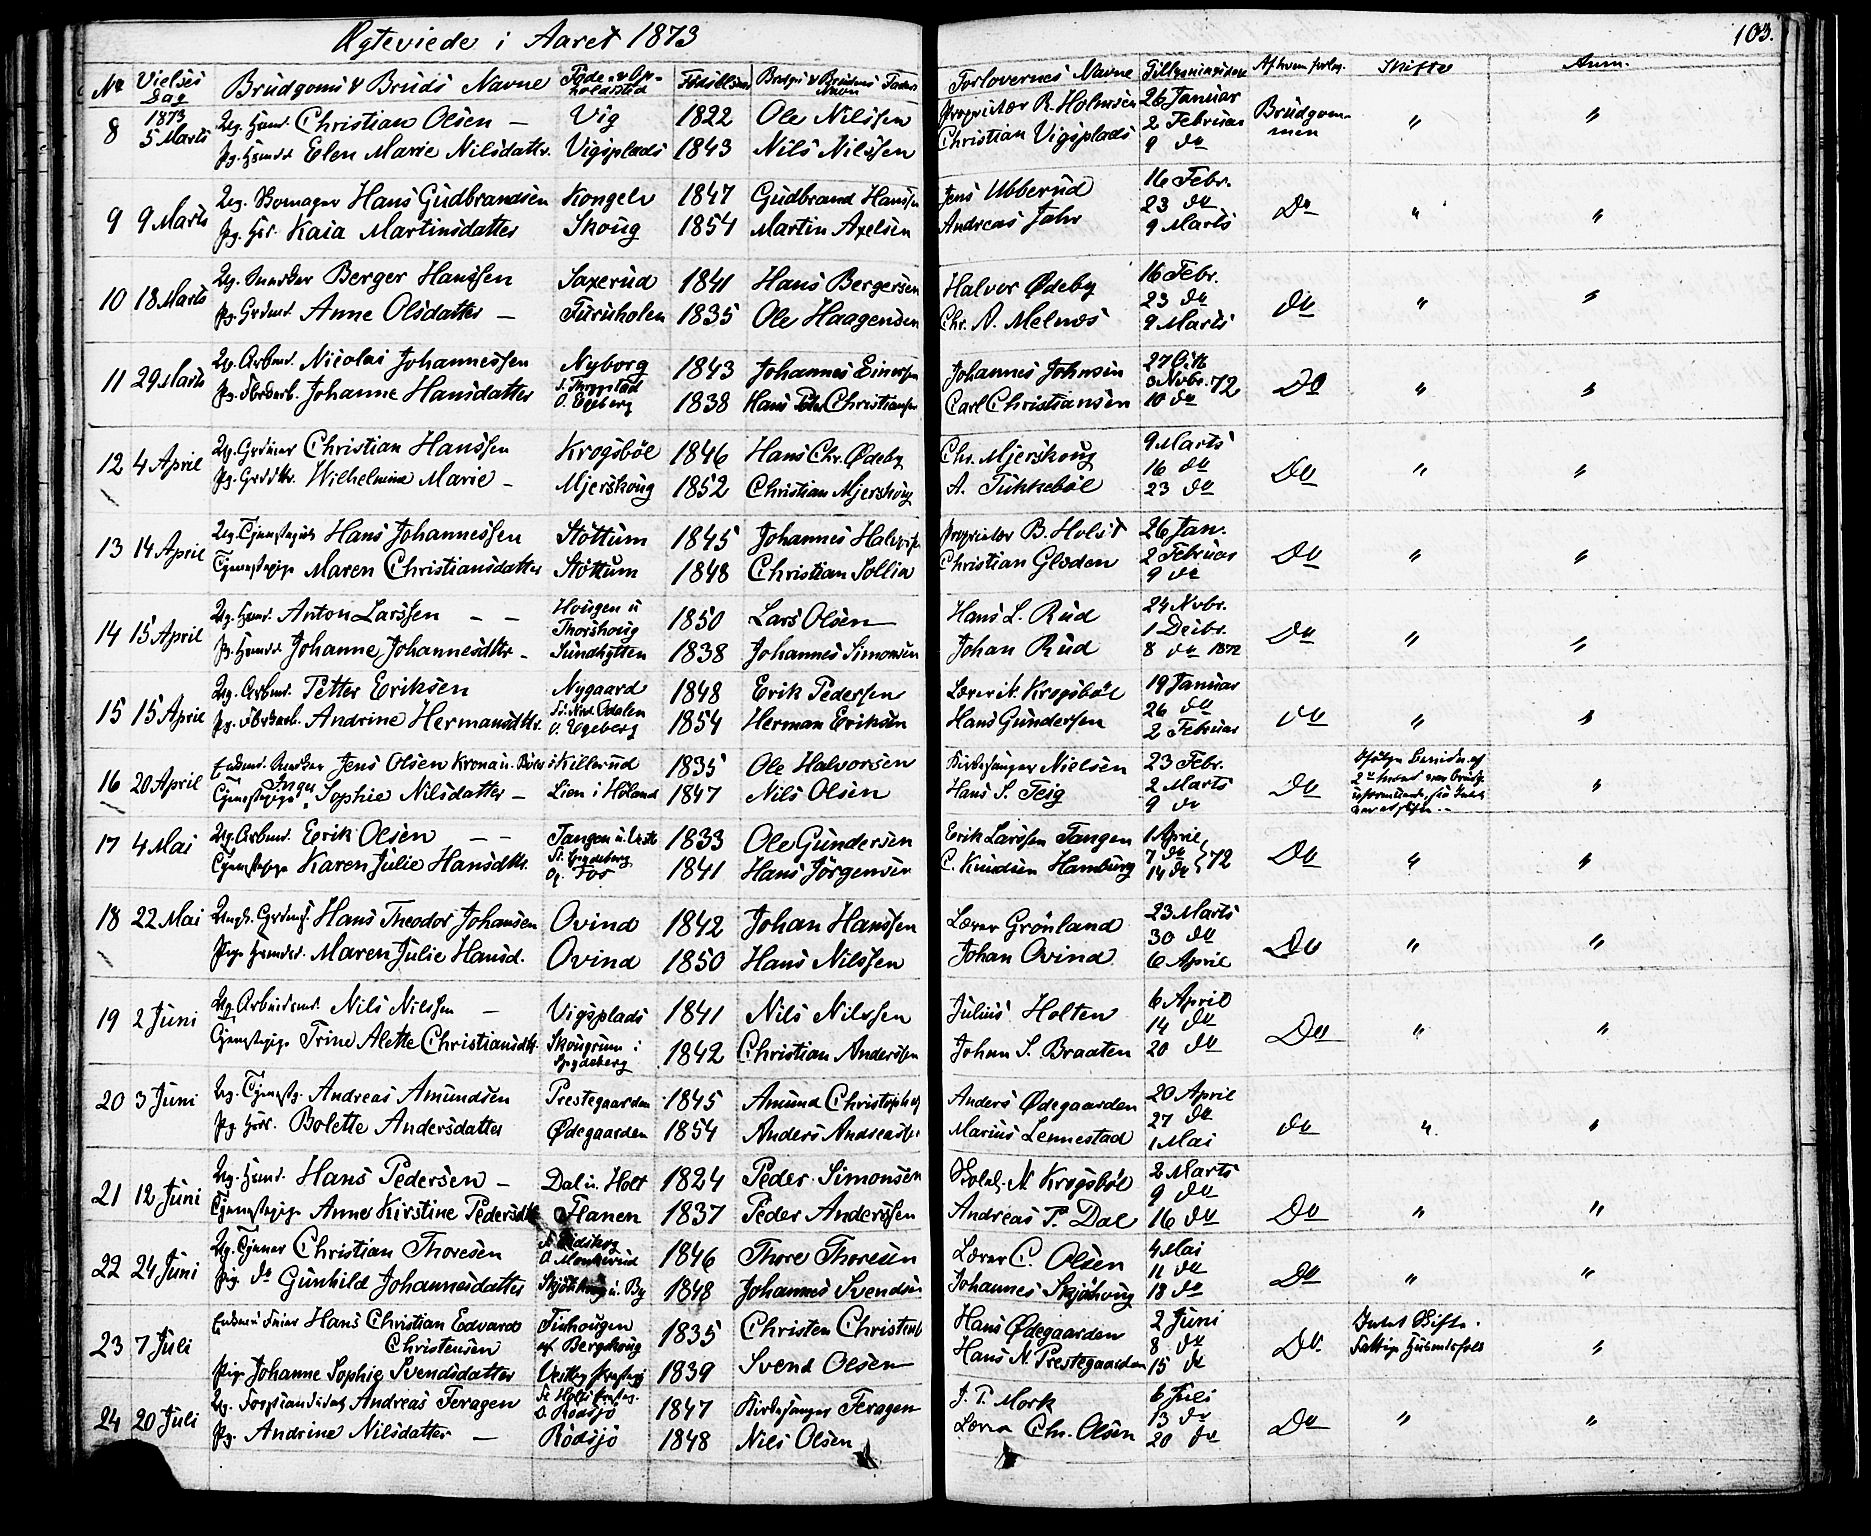 Ægteviede i Aaret 1873
103.
No Vielses Dag Brudgoms & Bruds Navne Føde- & Opholdssted Fødselsaar Brudgs & Brudens Faders Navn Forlovernes Navne Tillysningsdage Skifte Anm.
1873
8 5 Marts Ug. Christian Olsen — Vig 1822 Ole Nilssen Proprietær R. Holmsen 26 Januar Brudgommen " "
Pg. Elen Marie Nilsdatter Vigsplads 1843 Nils Nilssen Christian Vigsplads 2 Februar
9 do
9 9 Marts Ug. Hans Gudbrandsen Kongelv 1847 Gudbrand Hanssen Jens Ubberud 16 Febr. Do " "
Pg. Kaia Martinsdatter Skoug 1854 Martin Axelsen Andreas Jahr 23 do
9 Marts
10 18 Marts Ug. Snedker Berger Hanssen Saxerud 1841 Hans Bergersen Halvor Ødeby 16 Febr. do " "
Pg. Anne Olsdatter — Furuholen 1835 Ole Haagensen Chr. A. Melnæs 23 do
9 Marts
11 29 Marts Ug. Arbmd. Nicolai Johannessen Nyborg 1843 Johannes Einersen Johannes Johnsen 27 Octb Do " "
3 Novbr. 72
Pg. Johanne Hansdatter O. Egeberg 1838 Hans Peder Christiansen Carl Christiansen 10 do
12 4 April Ug. Christian Hanssen Krogsböl 1846 Hans Chr. Ødeby Chr. Mjerskoug 9 Marts Do " "
Pg. Wilhelmine Marie — Mjerskoug 1852 Christian Mjerskoug A. Tukkeböl 16 do
23 do
13 14 April Ug. Hans Johannessen Stöttum 1845 Johannes Halvorsen Proprietær B. Holst 26 Jan. Do " "
Tjenestepige Maren Christiansdatter Stöttum 1848 Christian Sollia Christian Gloden 2 Februar
9 do
14 15 April Ug. Anton Larssen — — Hougen u Thorshoug 1850 Lars Olsen Hans L. Rud 24 Novbr. Do " "
1 Decbr.
Pg. Johanne Johannesdtr. — Sundhytten 1838 Johannes Simonsen Johan Rud 8 do 1872
15 15 April Ug. Arbmd. Petter Eriksen Nygaard 1848 Erik Pedersen Lærer N. Krogsböl 19 Januar do " "
Fö. Nord Odalen 26 do
Pg. Andrine Hermansdtr. O. Egeberg 1854 Herman Eriksen Hans Gundersen 2 Februar
16 20 April Enkemd. Snedker Jens Olsen Killerud 1835 Ole Halvorsen Kirkesanger Nielsen 23 Febr. Do "
Tjenestepige Inger Sophie Nilsdatter — Lien i Höland 1847 Nils Olsen Hans S. Teig 2 Marts
9 do
17 4 Mai Ug. Arbmd. Erik Olsen — — Tangen u. 1833 Ole Gundersen Erik Larssen Tangen 1 April Do " "
7 do 72
Tjenestepige Karen Julie Hansdtr. Op. Fos 1841 Hans Jörgensen C. Knudsen Hamburg 14 do
18 22 Mai Hans Theodor Johansen Ovind 1842 Johan Hanssen Lærer Grönland 23 Marts Do " "
Pige Maren Julie Hansd. Ovind 1850 Hans Nilssen Johan Ovind 30 do
6 April
19 2 Juni Ug. Arbeidsmd. Nils Nilssen — Vigsplads 1841 Nils Nilssen Julius Holten 6 April Do " "
14 do
Tjenestepige Trine Alette Christiansdtr. Skougrum i Spydeberg 1842 Christian Anderssen Johan S. Braaten 20 do
20 3 Juni Ug. Andreas Amundsen Prestegaarden 1845 Amund Christophers Anders Ødegaarden 20 April do " "
Pg. Bolette Andersdatter Ødegaarden 1854 Anders Andreassen Marius Lennestad 27 do
1 Mai
21 12 Juni Ug. Hans Pedersen — Dal u. Holt 1824 Peder Simonsen N. Krogsböl 2 Marts Do " "
9 do
Tjenestepige Anne Kirstine Pedersdtr Flanen 1837 Peder Anderssen Andreas P. Dal 16 do
22 24 Juni Ug. Christian Thoresen 1846 Thore Thoresen Lærer C. Olsen 4 Mai Do " "
11 do
Pige do Gunhild Johannesdatter Skjölhoug u. By 1848 Johannes Svendsen Johannes Skjölhoug 18 do
23 7 Juli Hans Christian Edvard Christensen Tuehougen af Bergskoug 1835 Christen Christens Hans Ødegaarden 2 Juni Do Intet Skifte. "
8 do Fattige
Pige Johanne Sophie Svendsdatter Vestby 1839 Svend Olsen Hans N. Prestegaarden 15 do
24 20 Juli Ug. Andreas Feragen O. Rödsjö 1847 Kirkesanger Feragen J. P. Mork 6 Juli Do " "
13 do
Pg. Andrine Nilsdatter — Rödsjö 1848 Nils Olsen Lærer Chr. Olsen 20 do